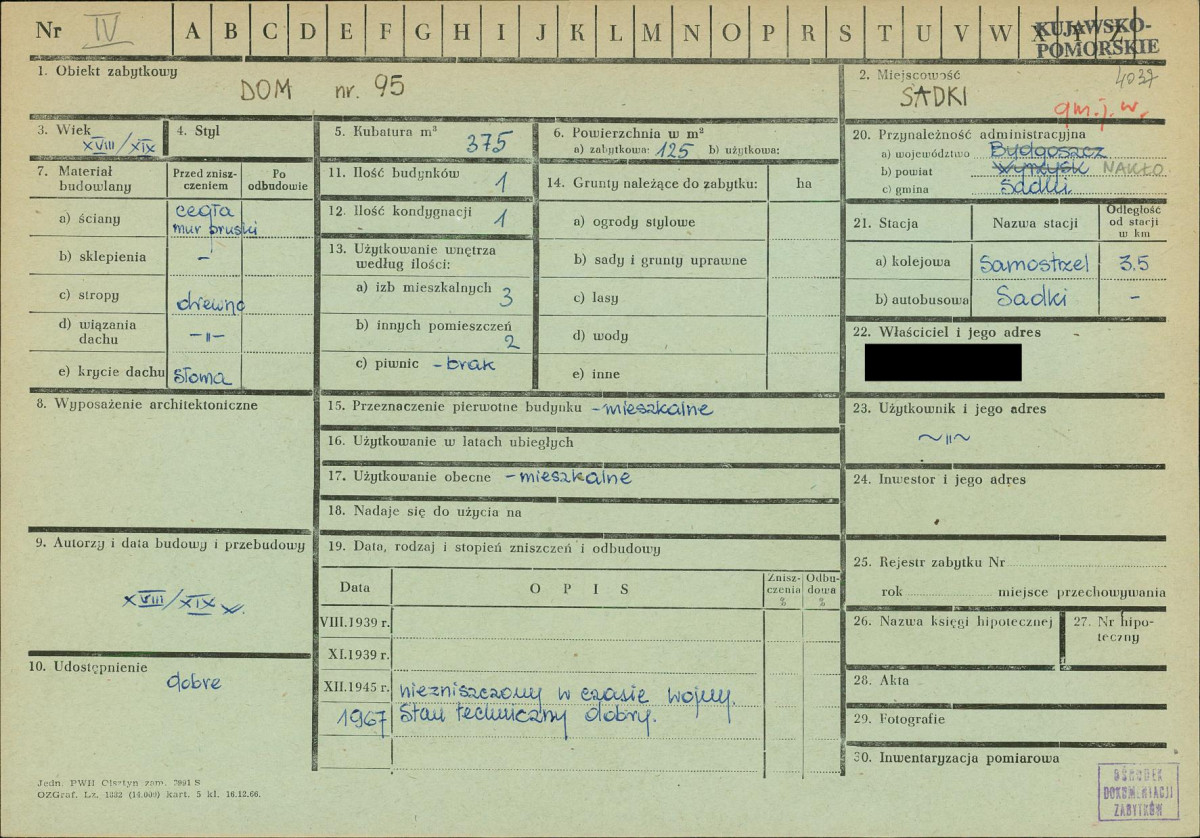 Nr IV A B C D E F G H I J K L M N O P R S T U V W X Y Z
KUJAWSKO-
POMORSKIE
1. Obiekt zabytkowy
DOM nr. 95
2. Miejscowość
4037
SADKI
gm. j. w.
3. Wiek
XVIII/XIX
4. Styl
5. Kubatura m³
375
6. Powierzchnia w m²
a) zabytkowa: 125 b) użytkowa:
20. Przynależność administracyjna
a) województwo Bydgoszcz
b) powiat Wyrzysk NAKŁO
c) gmina Sadki
7. Materiał
budowlany
Przed znisz-
czeniem
Po
odbudowie
a) ściany
cegła
mur pruski
b) sklepienia -
c) stropy drewno
d) wiązania
dachu -"-
e) krycie dachu słoma
11. Ilość budynków
1
12. Ilość kondygnacji 1
13. Użytkowanie wnętrza
według ilości:
a) izb mieszkalnych 3
b) innych pomieszczeń
2
c) piwnic - brak
14. Grunty należące do zabytku: ha
a) ogrody stylowe
b) sady i grunty uprawne
c) lasy
d) wody
e) inne
21. Stacja
Nazwa stacji
Odległość
od stacji
w km
a) kolejowa Samostrzel 3.5
b) autobusowa Sadki -
22. Właściciel i jego adres
8. Wyposażenie architektoniczne
15. Przeznaczenie pierwotne budynku - mieszkalne
16. Użytkowanie w latach ubiegłych
17. Użytkowanie obecne - mieszkalne
18. Nadaje się do użycia na
23. Użytkownik i jego adres
~"~
24. Inwestor i jego adres
9. Autorzy i data budowy i przebudowy
XVIII/XIX w.
10. Udostępnienie
dobre
19. Data, rodzaj i stopień zniszczeń i odbudowy
Data
OPIS
Znisz-
czenia
%
Odbu-
dowa
%
VIII.1939 r.
XI.1939 r.
XII.1945 r. niezniszczony w czasie wojny.
1967 Stan techniczny dobry.
25. Rejestr zabytku Nr
rok miejsce przechowywania
26. Nazwa księgi hipotecznej
27. Nr hipo-
teczny
28. Akta
29. Fotografie
30. Inwentaryzacja pomiarowa
OŚRODEK
DOKUMENTACJI
ZABYTKÓW
Jedn. PWH Olsztyn zam. 2991 S
OZGraf. Lz. 1332 (14.000) kart. 5 kl. 16.12.66.